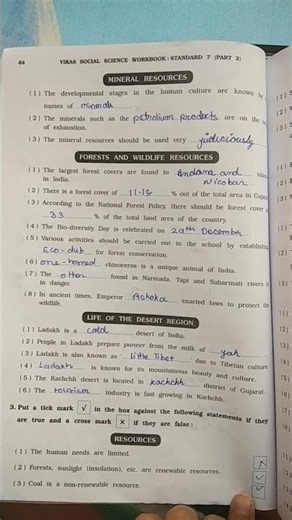 64 VIKAS SOCIAL SCIENCE WORKBOOK : STANDARD 7 (PART 2)
MINERAL RESOURCES
(1) The developmental stages in the human culture are known by
names of minerals
(2) The minerals such as the petrolium products are on the
of exhaustion.
(3) The mineral resources should be used very judiciously
FORESTS AND WILDLIFE RESOURCES
(1) The largest forest covers are found in Andama and
Nicobar
in India.
(2) There is a forest cover of 11.18 % out of the total area in
(3) According to the National Forest Policy, there should be forest cover
33 % of the total land area of the country.
(4) The Bio-diversity Day is celebrated on 29th December
(5) Various activities should be carried out in the school by establishing
Eco-club for forest conservation.
(6) one-horned rhinoceros is a unique animal of India.
(7) The otter found in Narmada, Tapi and Sabarmati rivers is
in danger.
(8) In ancient times, Emperor Ashoka enacted laws to protect the
wildlife.
LIFE OF THE DESERT REGION
(1) Ladakh is a cold desert of India.
(2) People in Ladakh prepare paneer from the milk of yak
(3) Ladakh is also known as ' little Tibet ' due to Tibetan culture.
(4) Ladakh is known for its mountainous beauty and culture.
(5) The Kachchh desert is located in kachchh district of Gujarat.
(6) The tourism industry is fast growing in Kachchh.
3. Put a tick mark √ in the box against the following statements if they
are true and a cross mark × if they are false :
RESOURCES
(1) The human needs are limited.
(2) Forests, sunlight (insolation), etc. are renewable resources.
(3) Coal is a non-renewable resource.